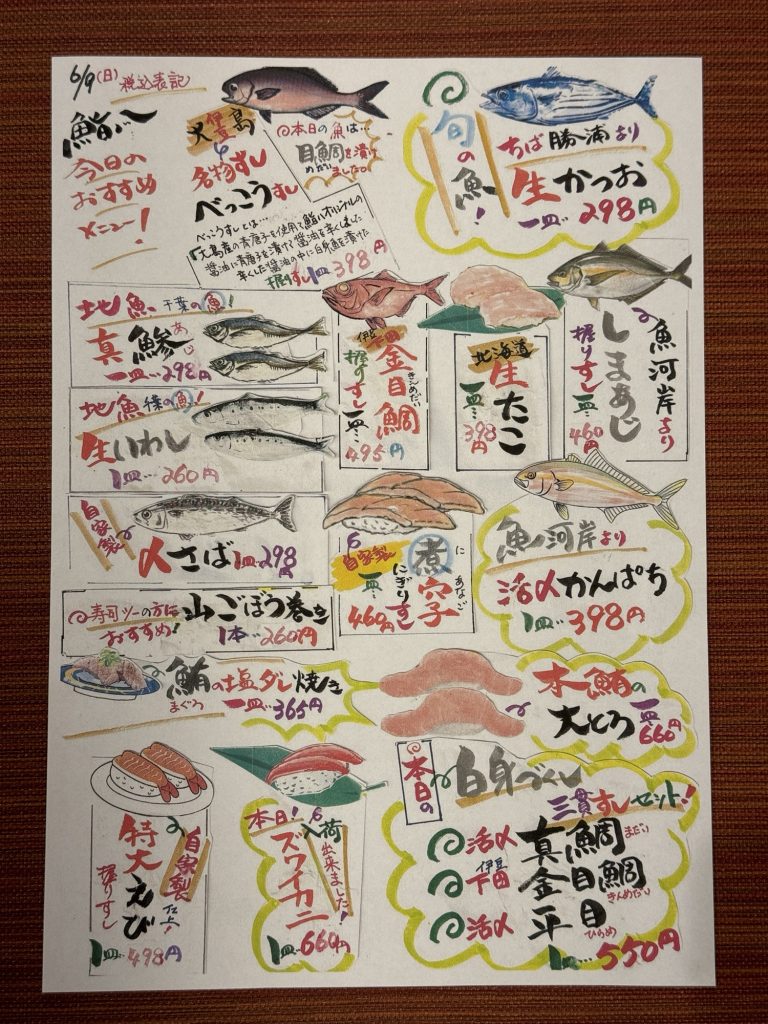 6/9(日)
税込表記
鮨八
今日の
おすすめ
メニュー!
伊豆
大島
名物ずし
べっこうずし
◎本日の魚は…
目鯛を漬け
めだい
ましたっ。
べっこうずしとは…
「大島産の青唐子を使用て鮨八オリジナルの
醤油に青唐子を漬けて醤油を辛くしました
辛くした醤油の中に白身魚を漬けた
握りずし1皿398円
旬の魚!
ちば勝浦より
生かつお
一皿…298円
地魚千葉の魚!
真鯵
あじ
一皿…298円
地魚千葉の魚!
生いわし
1皿…260円
自家製
〆さば1皿298円
◎寿司ツーの方に
おすすめ!
山ごぼう巻き
1本…260円
伊豆下田
金目鯛
きんめだい
握りずし一皿…
495円
北海道
生たこ
一皿…
398円
魚河岸より
しまあじ
握りずし一皿…
460円
自家製
煮穴子
に
あなご
にぎりずし
一皿…
460円
魚河岸より
活〆かんぱち
1皿…398円
鮪の塩ダレ焼き
まぐろ
一皿…365円
本鮪の
大とろ
一皿
660円
特大えび
自家製
仕上げ
握りずし
1皿…498円
本日!
入荷
出来ました!
ズワイカニ
1皿…660円
本日の
白身づくし
三貫ずしセット!
活〆真鯛
まだい
伊豆
下田金目鯛
きんめだい
活〆平目
ひらめ
1皿…550円